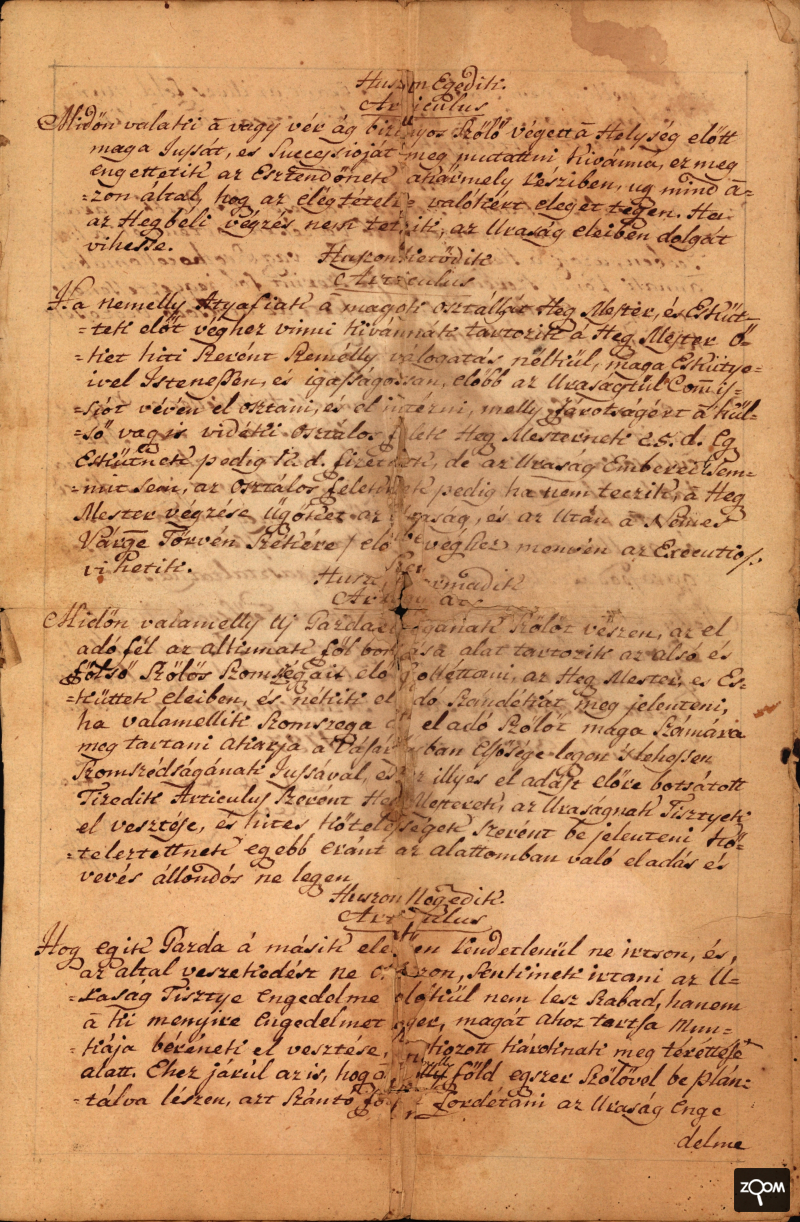 Huszon Egyedik.
Articulus
Midőn valaki à vagy vér ág bizonyos Szőlő végett à Helység előtt
maga Jussát, es Successioját meg mutattni kivánna, ez meg
engettetik az Esztendőnek akármely résziben, ug mind à-
-zon által, hog az elégtételre valokért eleget tegen. Ha
az Hegbéli végzés nem tetzik, az Uraság eleiben dolgát
vihesse.
Huszonkettődik
Articulus
Ha nemelly Atyafiak à magok osztállját Heg Mester, és Esküt-
-tek előt véghez vinni kivánnák tartozik à Heg Mester Ő-
-ket hiti Szerént Személly válogatás nélkül, maga Eskütye-
-ivel Istenessen, és igasságossan, előbb az Uraságtúl Com̄is-
-siót vévén el osztani, és el intézni, melly fárotságért à kül-
-ső vagis vidéki osztálos felek Heg Mesternek 25. d. Eg
Eskütnek pedig 12. d. fizetnek, de az Uraság Emberei Sem-
-mit sem, az osztálos feleknek pedig ha nem teczik, à Heg
Mester végzése ügöket az Uraság, és az Után à Nemes
Várge Törvén Székére / elő véghez menvén az Executio /.
vihetik. Szer
Huszon Harmadik
Articulus
Midőn valamelly Uj Gazda magának Szőlőt vészen, az el
adó fél az altinnak föl bontása alat tartozik az alsó és
fölső Szőlős Szomségait elő szolléttani, az Heg Mester, es Es-
-küttek eleiben, és nékik el adó Szándékát meg jelenteni,
ha valamellik Szomszega az el adó Szőlőt maga Számára
meg tartani akarja à Vásárlásban Elsősége legon s lehessen
Szomszédságának Jussával, ez illyés el adást előre botsátott
Tizedik Articulus Szerént Heg Mesterek, az Uraságnak Tisztyek
el vesztése, és hites kötelességek szerént be jelenteni kö-
-teleztettnek egebb eránt az alattomban való eladás és
vevés állondós ne legen
Huszon Negedik.
Articulus
Hog egik Gazda à másik ellen rendetlenül ne irtson, és,
az által veszekedést ne okozzon, Senkinek irtani az U-
-raság Tisztye Engedelme nélkűl nem lesz Szabad, hanem
à ki menyire Engedelmet nyer, magát ahoz tartsa Mun-
-kája bérének el vesztése, s okozott kárainak meg téréttése
alatt. Ehez járúl az is, hog a melly föld egszer Szőlővel be plán-
-tálva lészen, azt Szántó földé fordétani az Uraság Enge
delme
ZOOM